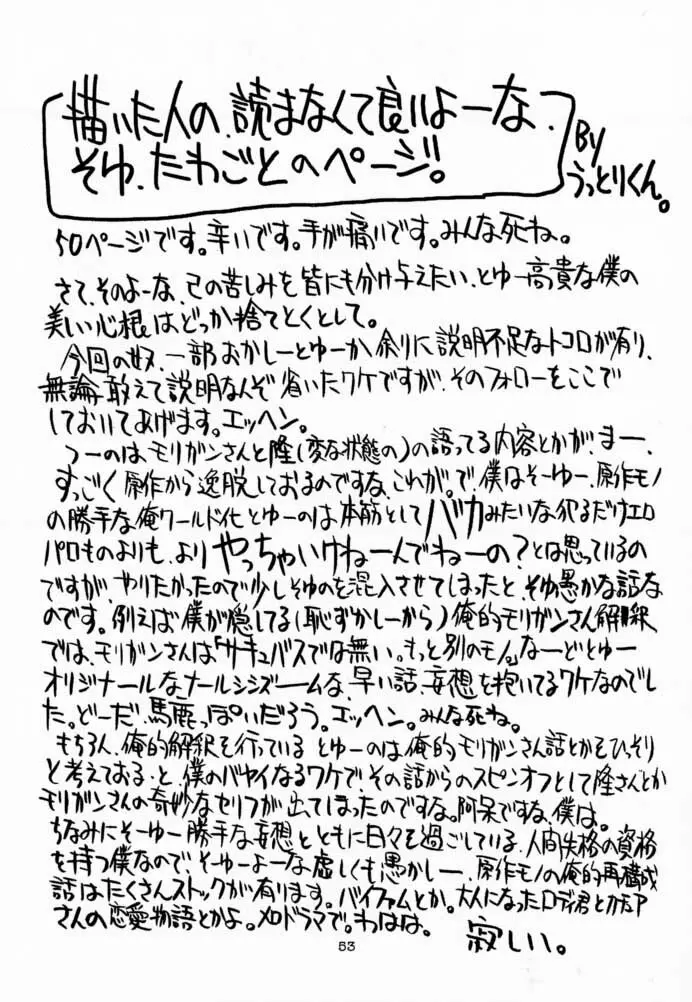 描いた人の、読まなくて良いよーな、
そゆ、たわごとのページ!。
By
うっとりくん。
50ページです。辛いです。手が痛いです。みんな死ね。
さて、そのよーな、己の苦しみを皆にも分け与えたい、とゆー高貴な僕の
美しい心根はどっか捨てとくとして。
今回の奴、一部おかしーとゆーか余りに説明不足なトコロが有り、
無論、敢えて説明なんぞ省いたワケですが、そのフォローをここで
しておいてあげます。エッヘン。
つーのは、モリガンさんと隆(変な状態の)の語ってる内容とかが、まー、
すっごく原作から逸脱しておるのですな、これが。で、僕はそーゆー、原作モノ
の勝手な俺ワールド化とゆーのは本筋としてバカみたいな犯るだけエロ
パロものよりも、よりやっちゃいけねーんでねーの?とは思っているの
ですが、やりたかったので少しそゆのを混入させてしまったと、そゆ愚かな話な
のです。例えば僕が隠してる(恥ずかしーから)俺的モリガンさん解釈
では、モリガンさんは「サキュバスでは無い。もっと別のモノ」なーどとゆー
オリジナールなナールシシズームな、早い話、妄想を抱いてるワケなのでし
た。どーだ、馬鹿っぽいだろう。エッヘン。みんな死ね。
もちろん、俺的解釈を行っているとゆーのは俺的モリガンさん話とかをひっそり
と考えておる、と、僕のバヤイなるワケで、その話からのスピンオフとして隆さんとか
モリガンさんの奇妙なセリフが出てしまったのですな。阿呆ですな、僕は。
ちなみにそーゆー勝手な妄想とともに日々を過ごしている、人間失格の資格
を持つ僕なので、そーゆーよーな虚しくも愚かしー、原作モノの俺的再構成
話はたくさんストックが有ります。バイファムとか。大人になったロディ君とカチュア
さんの恋愛物語とかよ。メロドラマで。わはは。
寂しい。
53